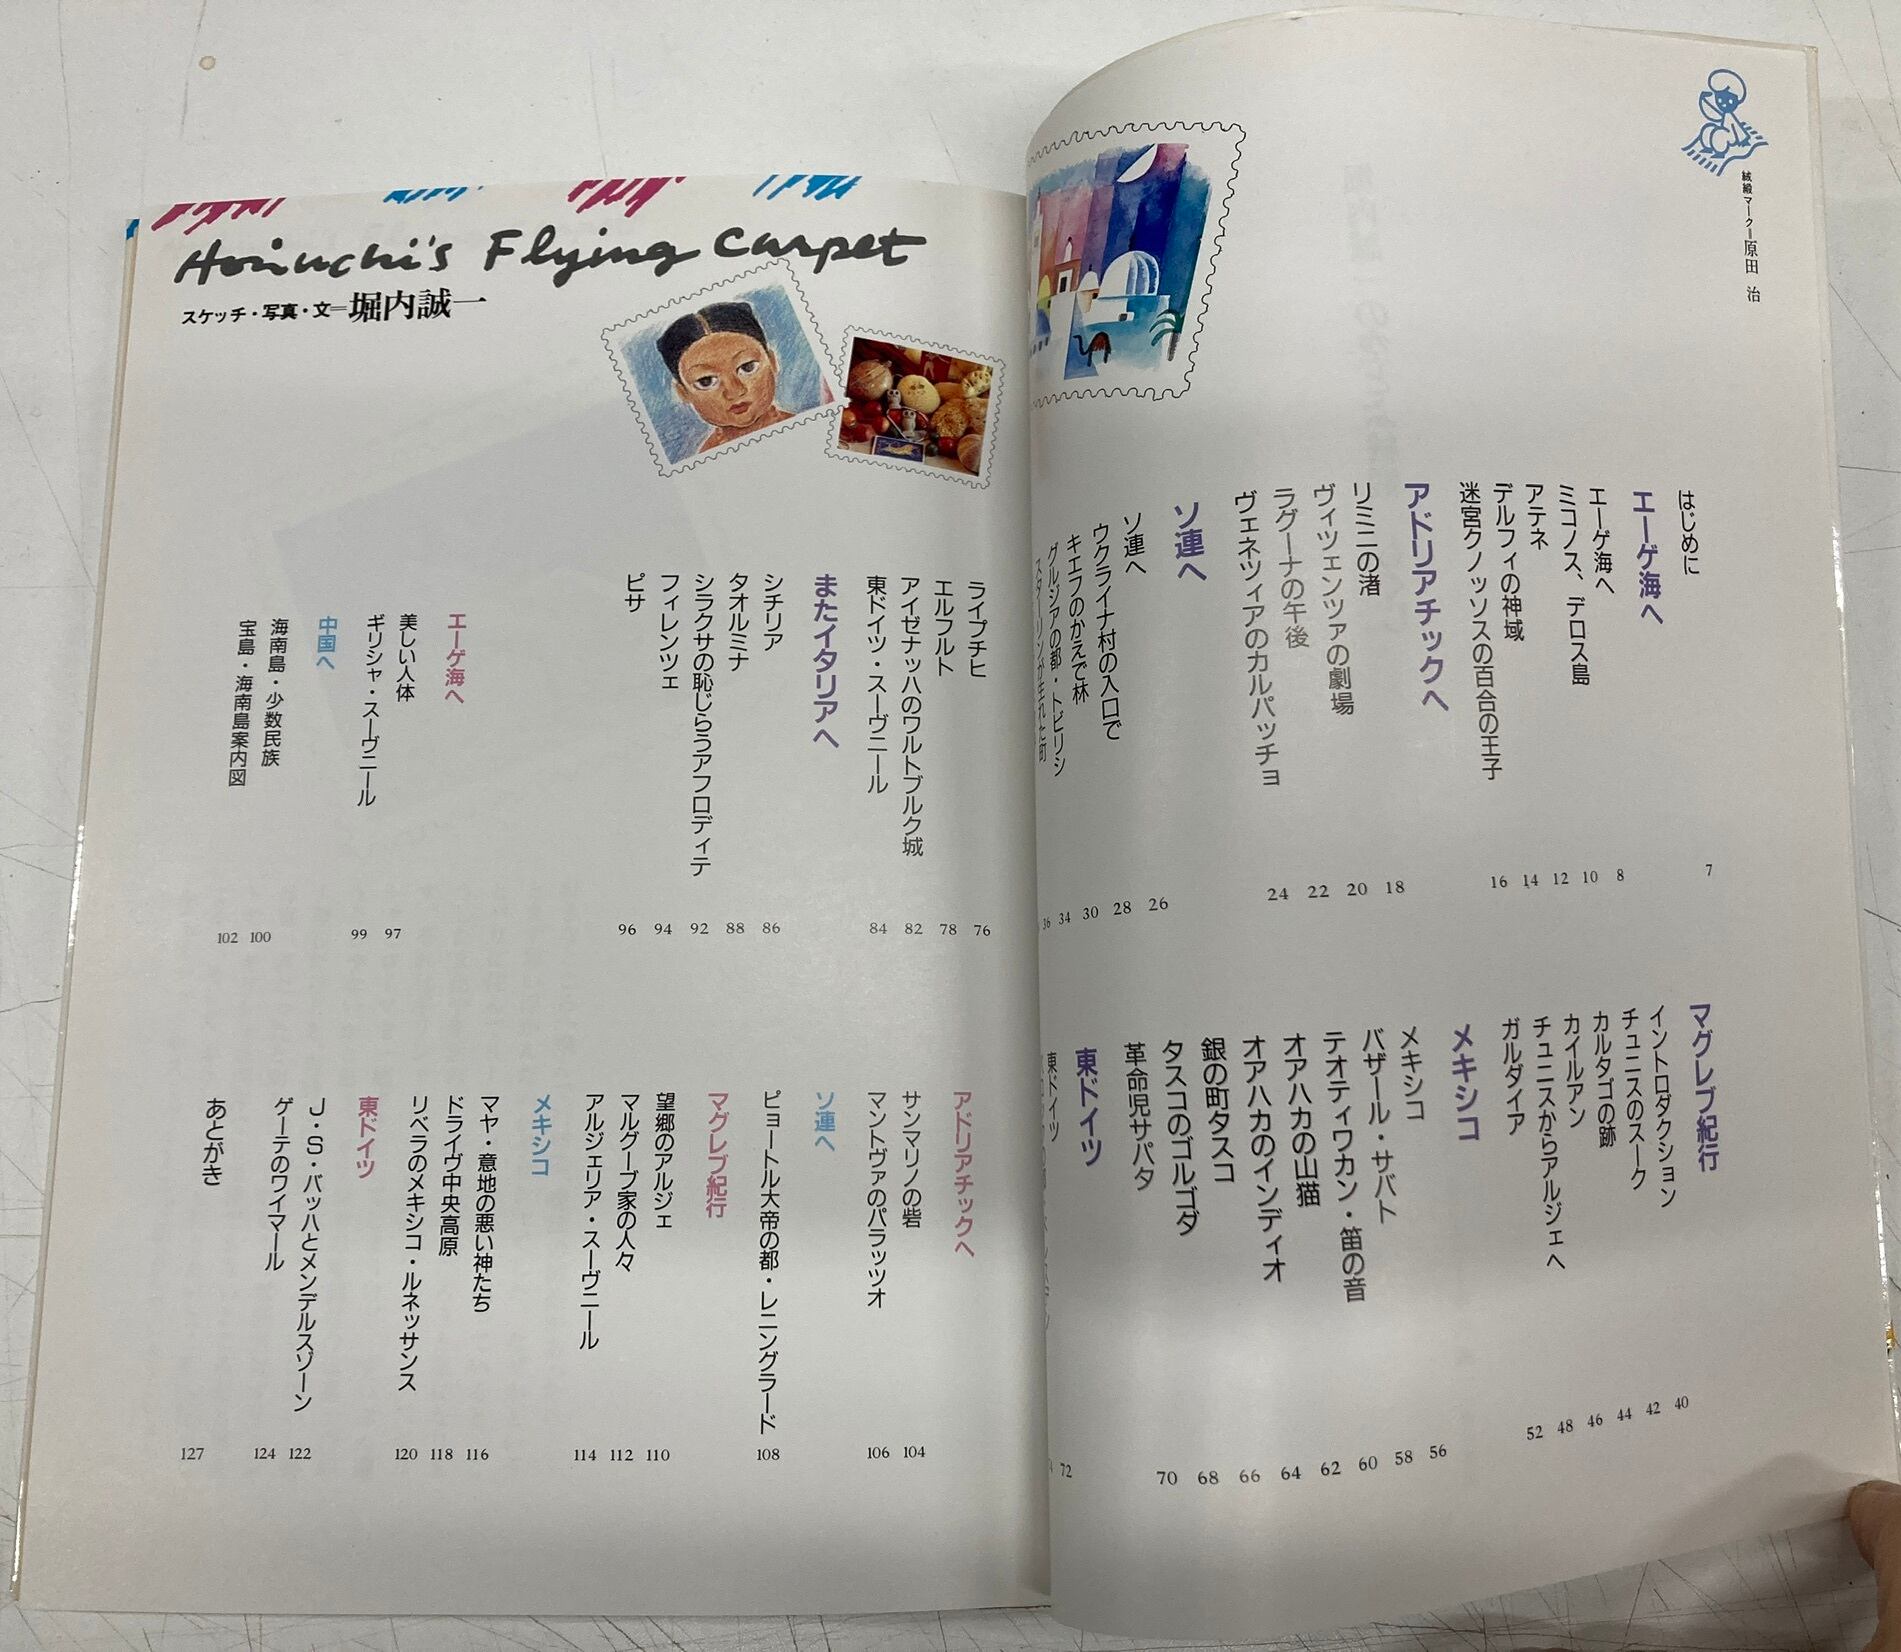 絨緞マーク―原田 治
はじめに 7
エーゲ海へ
エーゲ海へ 8
ミコノス、デロス島 10
アテネ 12
デルフィの神域 14
迷宮クノッソスの百合の王子 16
アドリアチックへ
リミニの渚 18
ヴィツェンツァの劇場 20
ラグーナの午後 22
ヴェネツィアのカルパッチョ 24
ソ連へ
ソ連へ 26
ウクライナ村の入口で 28
キエフのかえで林 30
グルジアの都・トビリシ 34
スターリンが生れた町 36
マグレブ紀行
イントロダクション 40
チュニスのスーク 42
カルタゴの跡 44
カイルアン 46
チュニスからアルジェへ 48
ガルダイア 52
メキシコ
メキシコ 56
バザール・サバト 58
テオティワカン・笛の音 60
オアハカの山猫 62
オアハカのインディオ 64
銀の町タスコ 66
タスコのゴルゴダ 68
革命児サパタ 70
東ドイツ
東ドイツ 72
Horiuchi's Flying Carpet
スケッチ・写真・文=堀内誠一
ライプチヒ 76
エルフルト 78
アイゼナッハのワルトブルク城 82
東ドイツ・スーヴニール 84
またイタリアへ
シチリア 86
タオルミナ 88
シラクサの恥じらうアフロディテ 92
フィレンツェ 94
ピサ 96
エーゲ海へ
美しい人体 97
ギリシャ・スーヴニール 99
中国へ
海南島・少数民族 100
宝島・海南島案内図 102
アドリアチックへ
サンマリノの砦 104
マントヴァのパラッツオ 106
ソ連へ
ピョートル大帝の都・レニングラード 108
マグレブ紀行
望郷のアルジェ 110
マルグーブ家の人々 112
アルジェリア・スーヴニール 114
メキシコ
マヤ・意地の悪い神たち 116
ドライヴ中央高原 118
リベラのメキシコ・ルネッサンス 120
東ドイツ
J・S・バッハとメンデルスゾーン 122
ゲーテのワイマール 124
あとがき 127